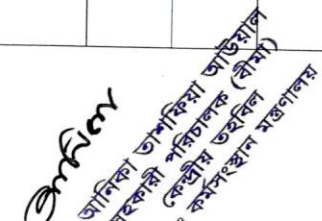 আনিকা তাশফিয়া আউয়াল
সহকারী পরিচালক (বীমা)
কেন্দ্রীয় তহবিল
কর্মসংস্থান মন্ত্রণালয়